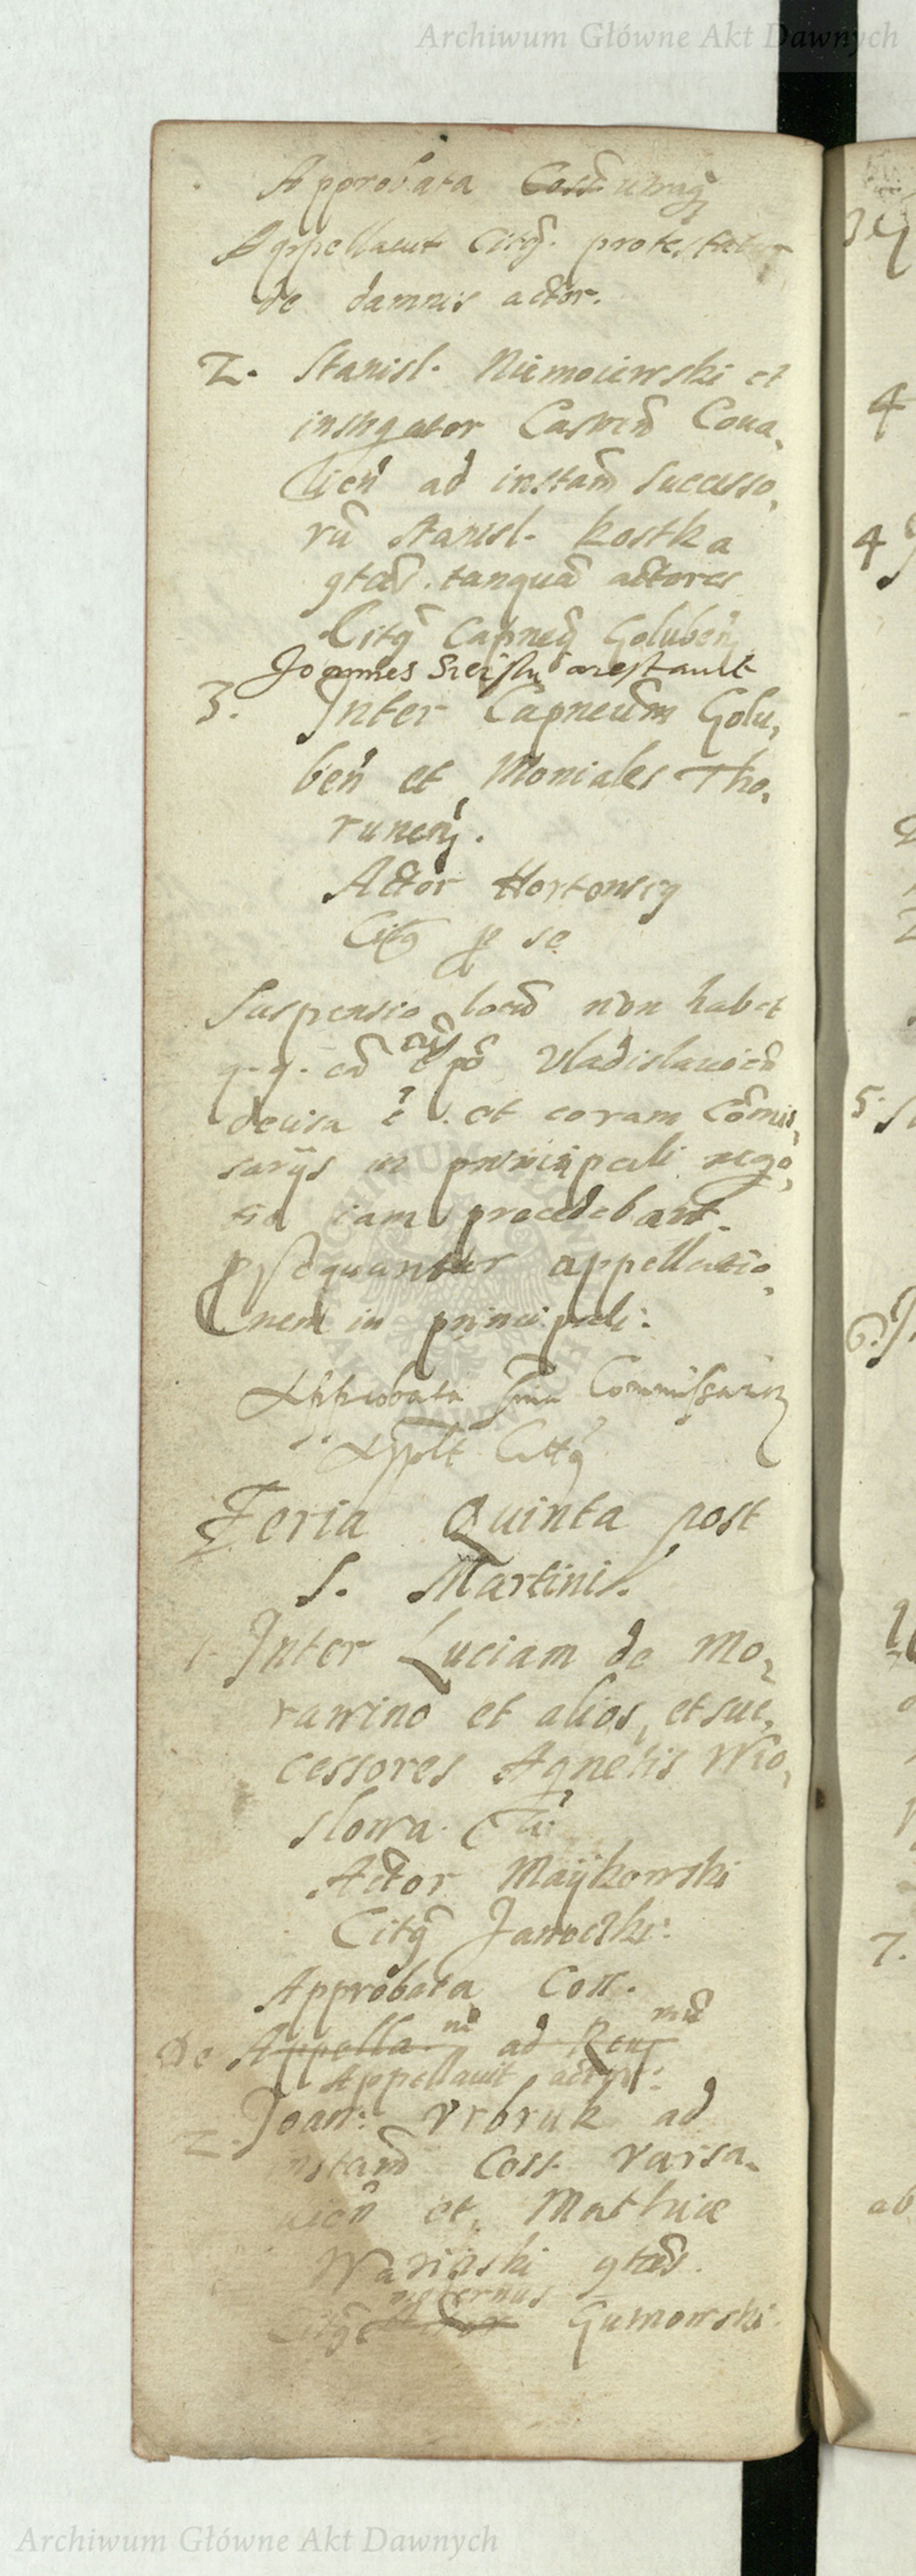 Archiwum Główne Akt Dawnych
Approbata Coss
Appellavit Citq. protestatur
de damnis actor.
2. Stanisl. Niemoiewski et
instigator Castren Coua,
lien ad instam successo,
ru Stanisl. Kostka
gtas. tanqua actores
Citq Capneq Goluben
Joannes arestauit
3. Inter Capneum Golu,
ben et Moniales Tho,
runen.
Actor Hortonscy
Citq p se
Suspensio locu non habet
q. q. ca Vladislauien
decisa e. et coram Comis,
sarijs in principali nego,
tio iam procedebant.
psequantur appellatio,
nem in principali:
Approbata Commissarior
Applt Cittq
Feria Quinta post
S. Martini.
1. Inter Luciam de Mo,
rawino et alios, et suc,
cessores Agnetis Wio,
slowa.
Actor Maijkowski
Citq Janoczki:
Approbata Coss.
De Appella. ni ad
Appellauit actor:
2. Joan: Vrbruk ad
instam Coss. Varsa,
uien et Mathiæ
Warinski gtas.
maternus
Citq Actor Gumowski.
Archiwum Główne Akt Dawnych